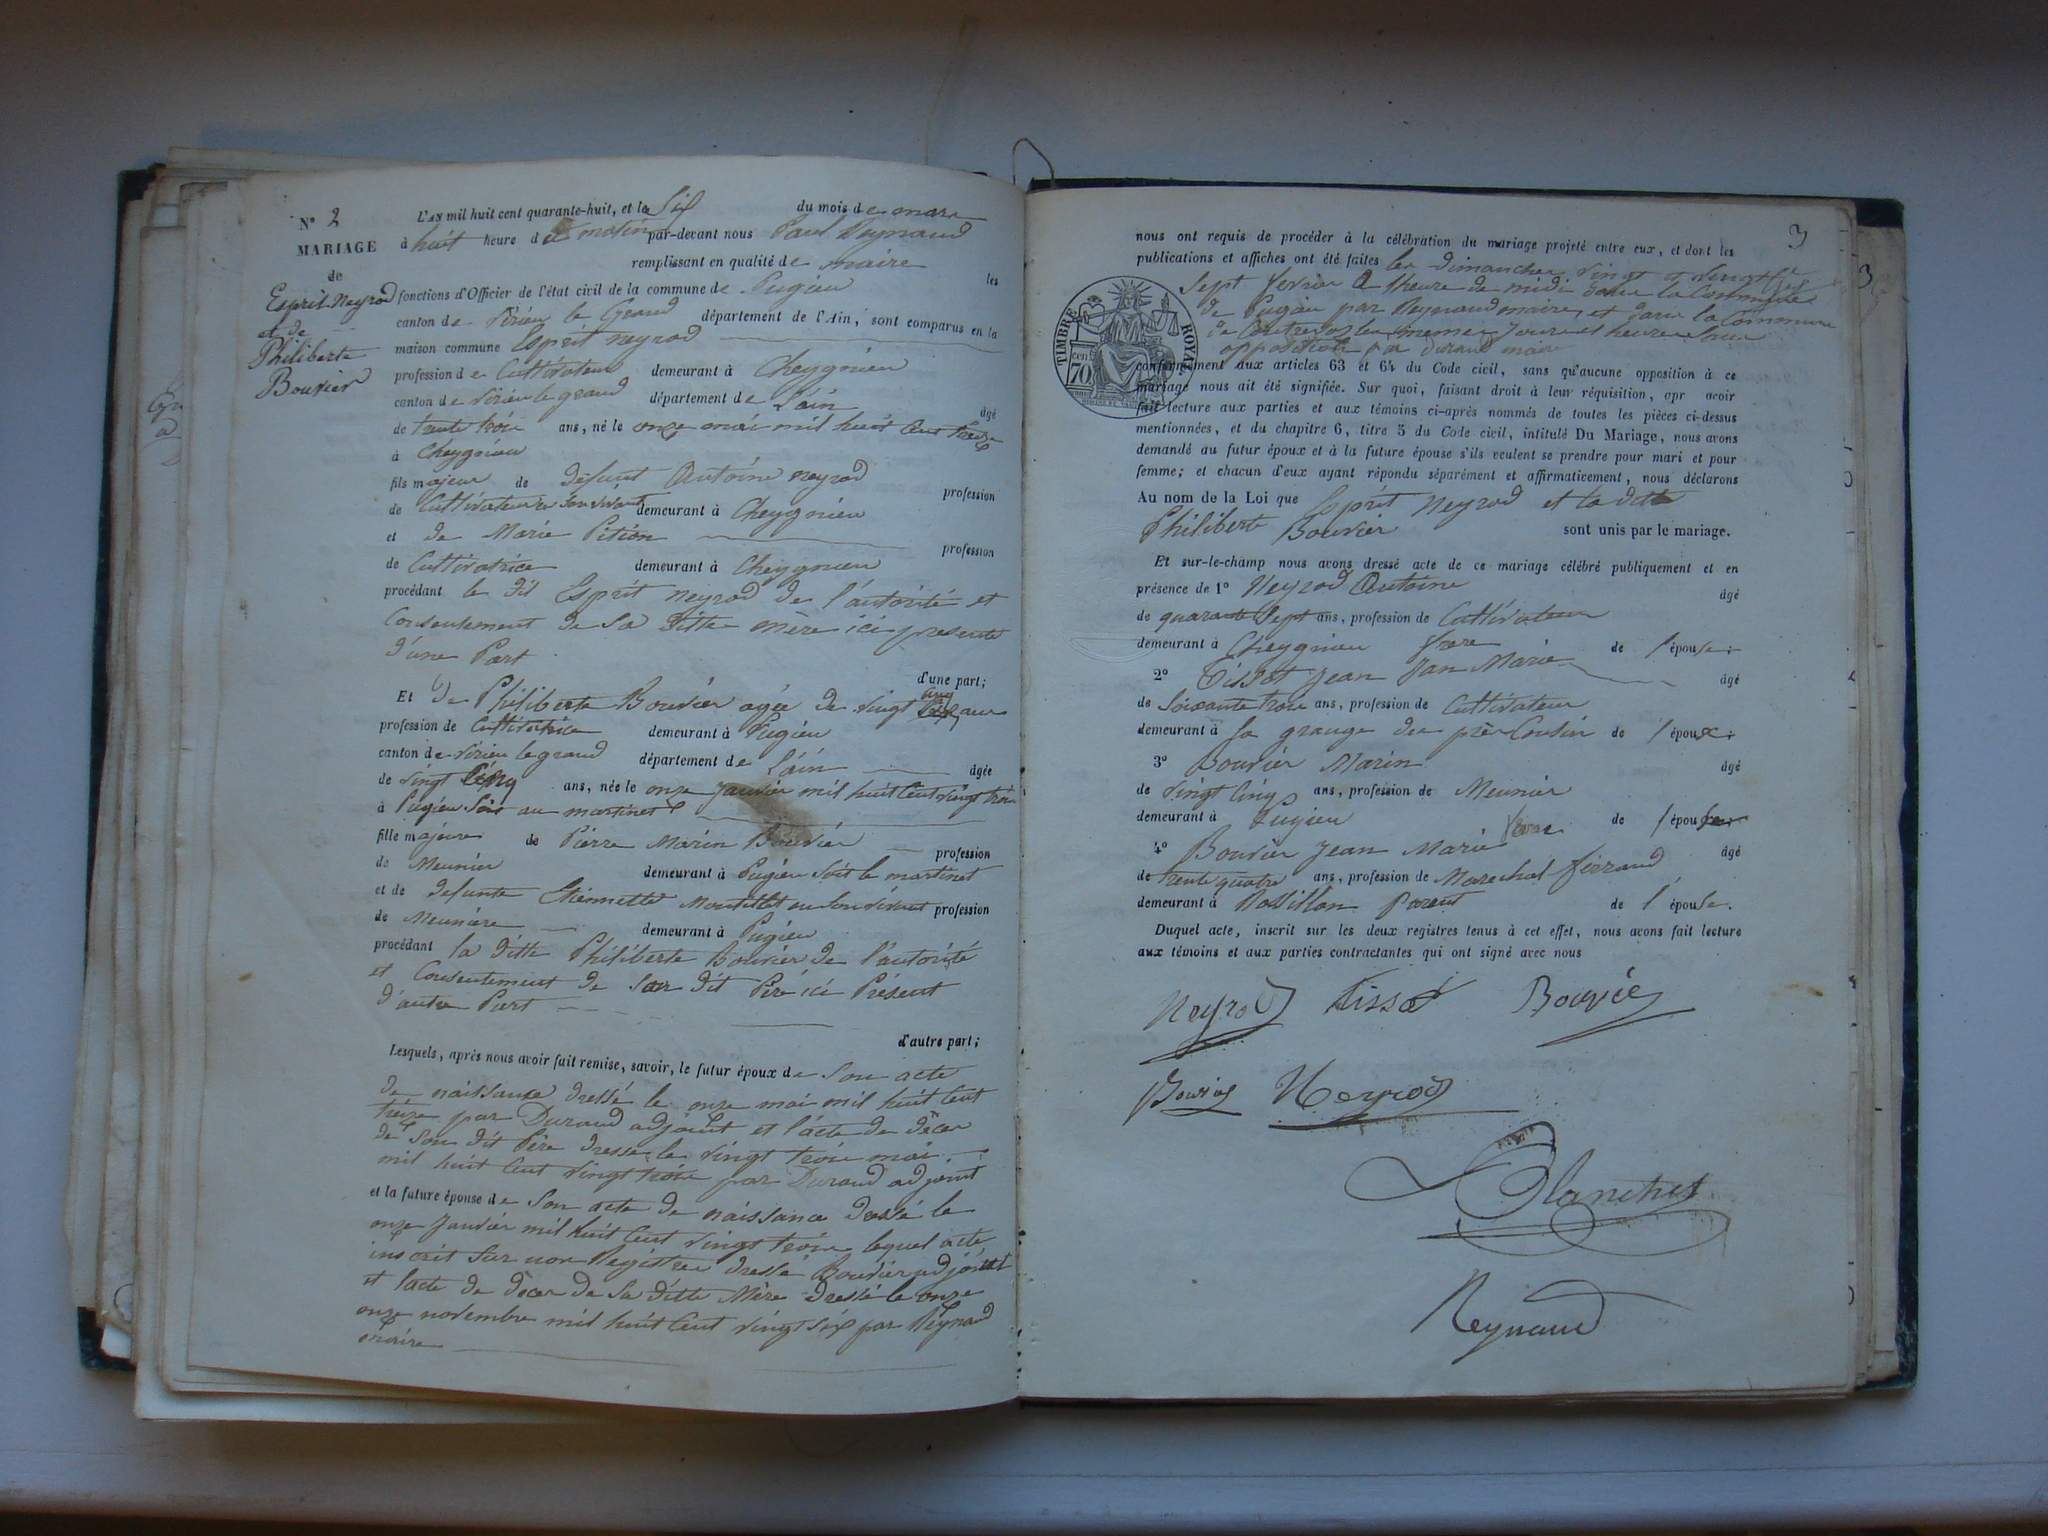 N° 2
MARIAGE
de
Esprit Neyrod
et de
Philiberte
Bouvier
L'AN mil huit cent quarante-huit, et le Six du mois de mars
à huit heure de matin par-devant nous Paul Reynaud
remplissant en qualité de maire les
fonctions d'Officier de l'état civil de la commune de Pugieu
canton de Virieu le Grand département de l'Ain, sont comparus en la
maison commune Esprit neyrod
profession de Cultivateur demeurant à Cheygnieu
canton de Virieu le grand département de L'ain âgé
de trente trois ans, né le onze mai mil huit Cent treize
à Cheygnieu
fils majeur de défunt Antoine neyrod profession
de Cultivateur en son vivant demeurant à Cheygnieu
et de Marie Pition profession
de Cultivatrice demeurant à Cheygnieu
procédant le dit Esprit neyrod de l'autorité et
Consentement de Sa ditte mère ici presente
d'une Part
d'une part;
Et de Philiberte Bouvier agée de vingt cinq ans
profession de Cultivatrice demeurant à Pugieu
canton de Virieu le grand département de L'ain âgée
de vingt Cinq ans, née le onze janvier mil huit Cent vingt trois
à Pugieu Soit au martinet
fille majeure de Pierre Marin Bouvier profession
de Meunier demeurant à Pugieu Soit le martinet
et de defunte Etiennette Montillet en Son vivant profession
de Meuniere demeurant à Pugieu
procédant la ditte Philiberte Bouvier de l'autorité
et Consentement de Son dit Père ici Présent
d'autre Part
d'autre part;
Lesquels, après nous avoir fait remise, savoir, le futur époux de Son acte
de naissance dressé le onze mai mil huit Cent
treize par Durand adjoint et l'acte de décer
de Son dit Père dressé le vingt trois mai
mil huit Cent vingt trois par Durand adjoint
et la future épouse de Son acte de naissance dressé le
onze janvier mil huit Cent vingt trois lequel acte
inscrit Sur nos Registres dressé Bouvier adjoint
et l'acte de décer de Sa ditte Mère dressé le onze
onze novembre mil huit Cent vingt six par Reynaud
maire
3
nous ont requis de procéder à la célébration du mariage projeté entre eux, et dont les
publications et affiches ont été faites les dimanches vingt et vingt
Sept fevrier a heure de midi dans la Commune
de Pugieu par Reynaud maire et dans la Commune
de les memes jours et heures Sans
opposition par Durand maire
TIMBRE ROYAL
cen. 70
conformément aux articles 63 et 64 du Code civil, sans qu'aucune opposition à ce
mariage nous ait été signifiée. Sur quoi, faisant droit à leur réquisition, apr avoir
fait lecture aux parties et aux témoins ci-après nommés de toutes les pièces ci-dessus
mentionnées, et du chapitre 6, titre 5 du Code civil, intitulé Du Mariage, nous avons
demandé au futur époux et à la future épouse s'ils veulent se prendre pour mari et pour
femme; et chacun d'eux ayant répondu séparément et affirmativement, nous déclarons
Au nom de la Loi que Esprit Neyrod et la ditte
Philiberte Bouvier sont unis par le mariage.
Et sur-le-champ nous avons dressé acte de ce mariage célébré publiquement et en
présence de 1° Neyrod Antoine âgé
de quarante Sept ans, profession de Cultivateur
demeurant à Cheygnieu frere de l'épouse
2° Tissot Jean Jan Marie âgé
de Soixante trois ans, profession de Cultivateur
demeurant à la grange des près Cousin de l'époux
3° Bouvier Marin âgé
de vingt Cinq ans, profession de Meunier
demeurant à Pugieu frere de l'épouse
4° Bouvier Jean Marie âgé
de trente quatre ans, profession de Marechal ferrand
demeurant à Rossillon Parent de l'épouse.
Duquel acte, inscrit sur les deux registres tenus à cet effet, nous avons fait lecture
aux témoins et aux parties contractantes qui ont signé avec nous
Neyrod Tissot Bouvié
Bouvier Neyrod
Blanchet
Reynaud
3